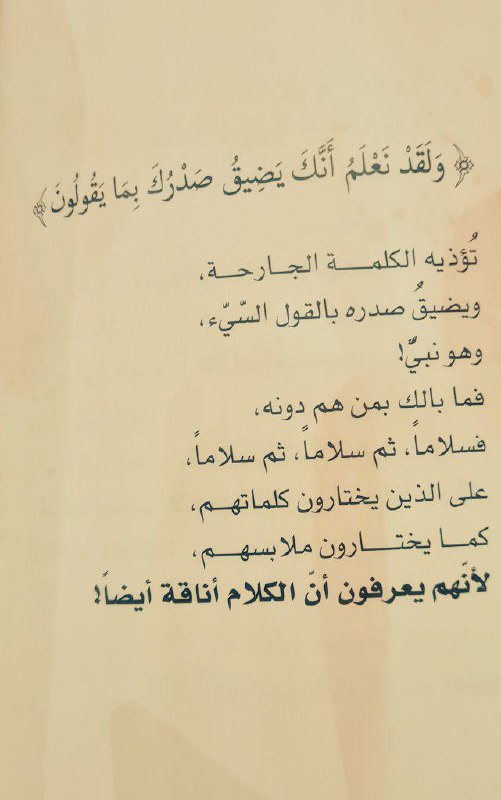 ﴿ وَلَقَدْ نَعْلَمُ أَنَّكَ يَضِيقُ صَدْرُكَ بِمَا يَقُولُونَ ﴾
تُؤذيه الكلمة الجارحة،
ويضيقُ صدره بالقول السّيّء،
وهو نبيٌّ!
فما بالك بمن هم دونه،
فسلاماً، ثم سلاماً، ثم سلاماً،
على الذين يختارون كلماتهم،
كما يختارون ملابسهم،
لأنّهم يعرفون أنّ الكلام أناقة أيضاً!